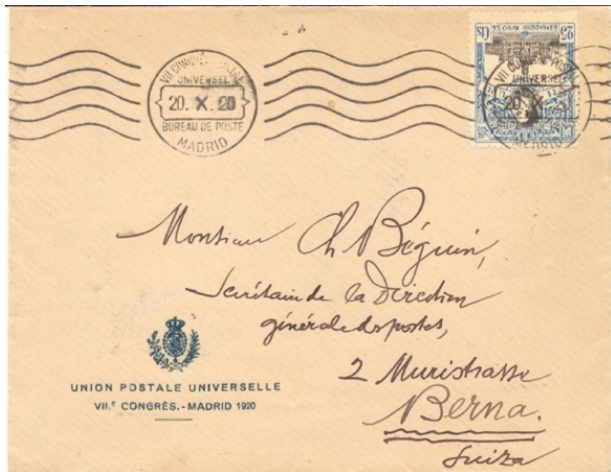 VII CONGRÈS POSTAL
UNIVERSEL
20. X. 20
BUREAU DE POSTE
MADRID
25 CTS
VII POSTAL
20 X
MADRID
Monsieur Ch Béguin,
Secrétaire de la Direction
générale des postes,
2 Muristrasse
Berna.
Suiza
UNION POSTALE UNIVERSELLE
VII.E CONGRÈS.-MADRID 1920